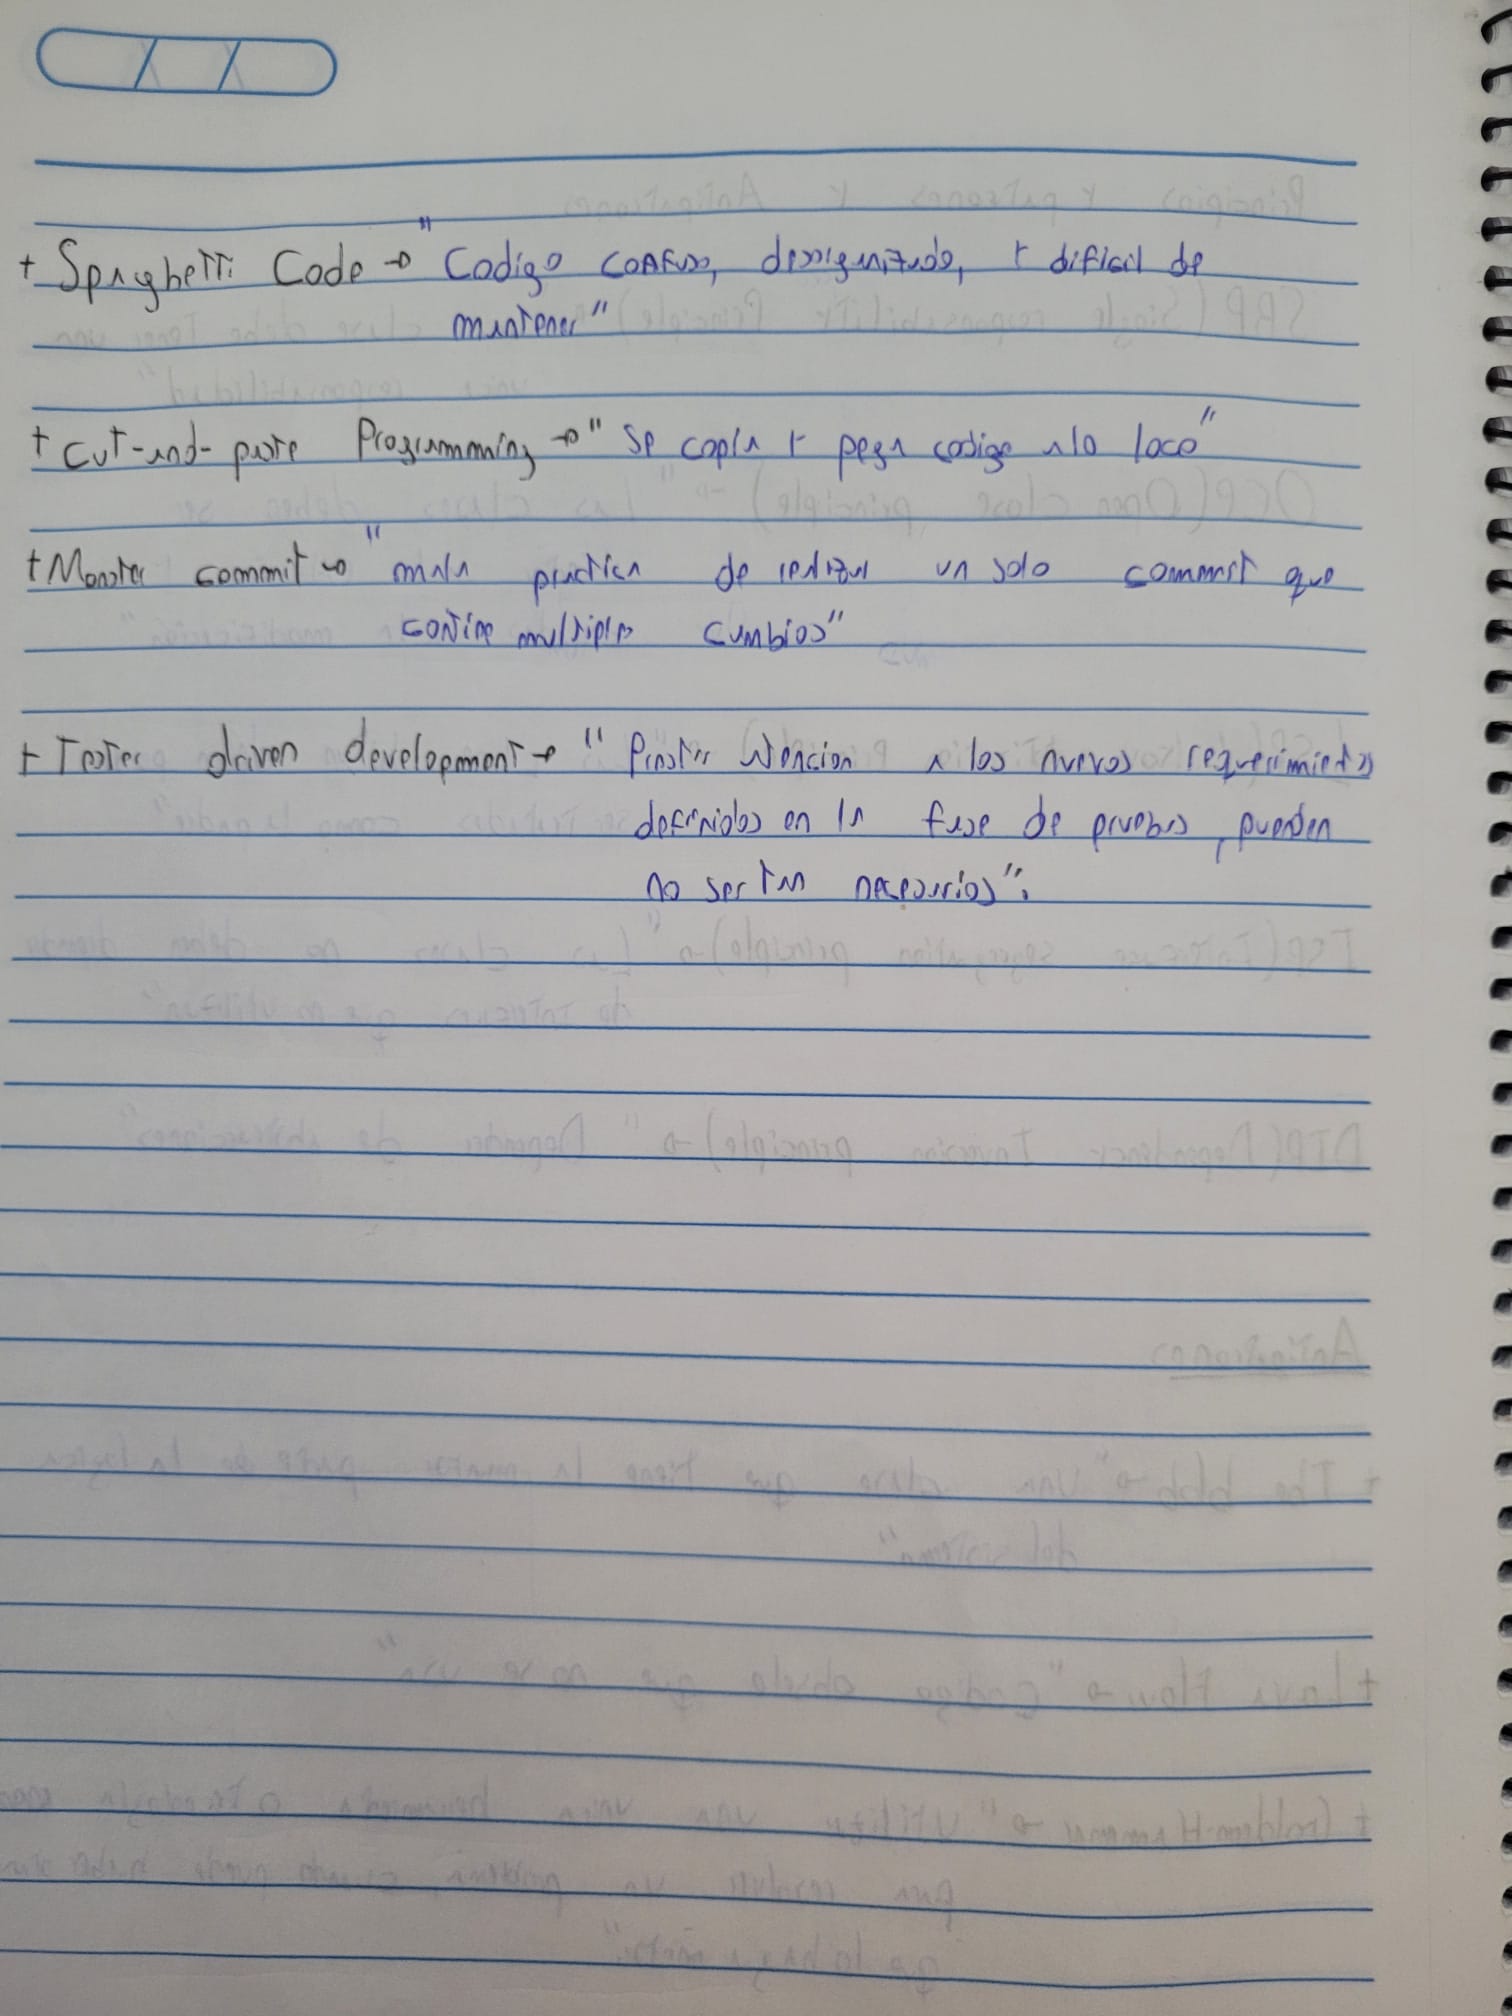 + Spaghetti Code → "Codigo confuso, desorganizado, y dificil de
mantener"
+ Cut-and-paste Programming → "Se copia y pega codigo a lo loco"
+ Monster commit → "mala practica de realizar un solo commit que
contine multiples cambios"
+ Tester driven development → "Prestar atencion a los nuevos requerimientos
definidos en la fase de pruebas, pueden
no ser tan necesarios".